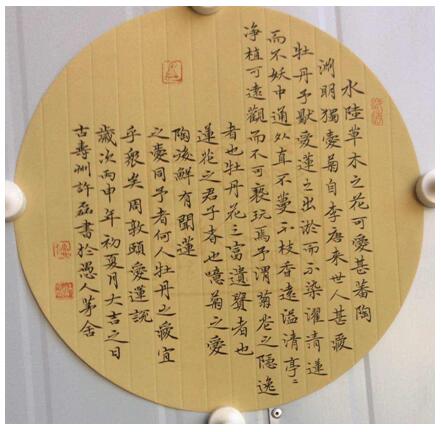 水陸草木之花可愛甚蕃陶
渊明獨愛菊自李唐来世人甚愛
牡丹予獸愛蓮之出淤而不染濯清漣
而不妖中通外直不蔓不枝香遠溢清亭〻
净植可遠觀而不可褻玩焉予謂菊花之隱逸
者也牡丹花之富遺賢者也
蓮花之君子者也噫菊之愛
陶後鮮有聞蓮
之愛同予者何人牡丹之愛宜
乎衆矣周敦頤愛蓮説
歲次丙申年初夏月大吉之日
古壽州許磊書於愚人茅舍